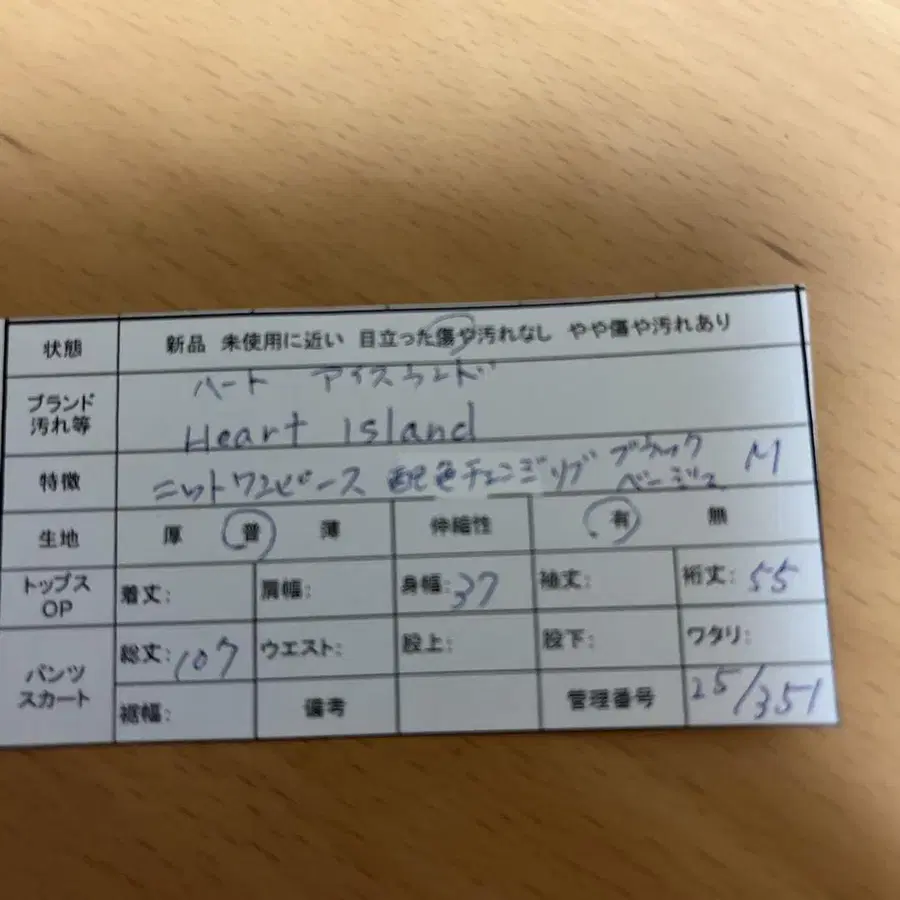 状態 新品 未使用に近い 目立った傷や汚れなし やや傷や汚れあり
ブランド 汚れ等 ハート アイスランド
Heart Island
特徴 ニットワンピース 配色チェンジリブ ブラック ベージュ M
生地 厚 普 薄 伸縮性 有 無
トップス OP 着丈: 肩幅: 身幅:37 袖丈: 裄丈:55
パンツ スカート 総丈:107 ウエスト: 股上: 股下: ワタリ:
裾幅: 備考 管理番号 25/351